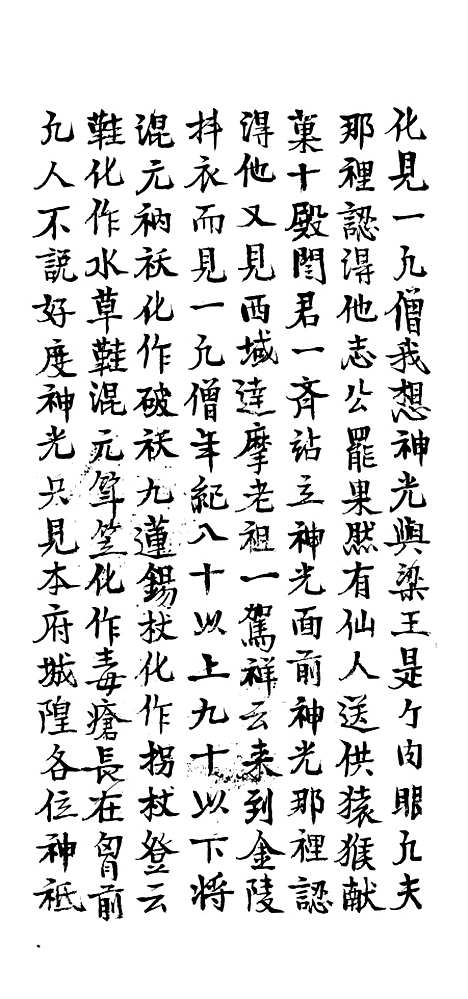 化見一凢僧我想神光與梁王是个肉眼凢夫
那裡認得他志公罷果然有仙人送供猿猴献
菓十殿閆君一斉站立神光面前神光那裡認
得他又見西域達摩老祖一駕祥云来到金陵
抖衣而見一凢僧年紀八十以上九十以下将
混元衲袄化作破袄九蓮錫杖化作拐杖登云
鞋化作水草鞋混元笠化作毒瘡長在胷前
凢人不説好度神光只見本府城隍各位神祗